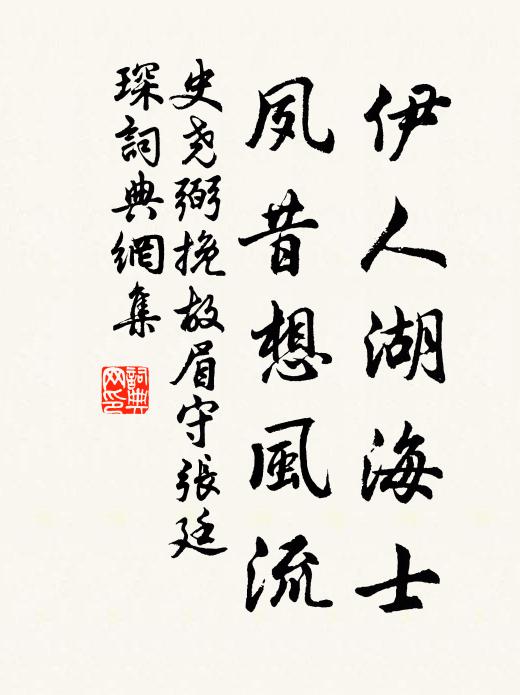 伊人湖海士
夙昔想風流
史堯弼挽故眉守張廷
琛詞典網集
詞典網印